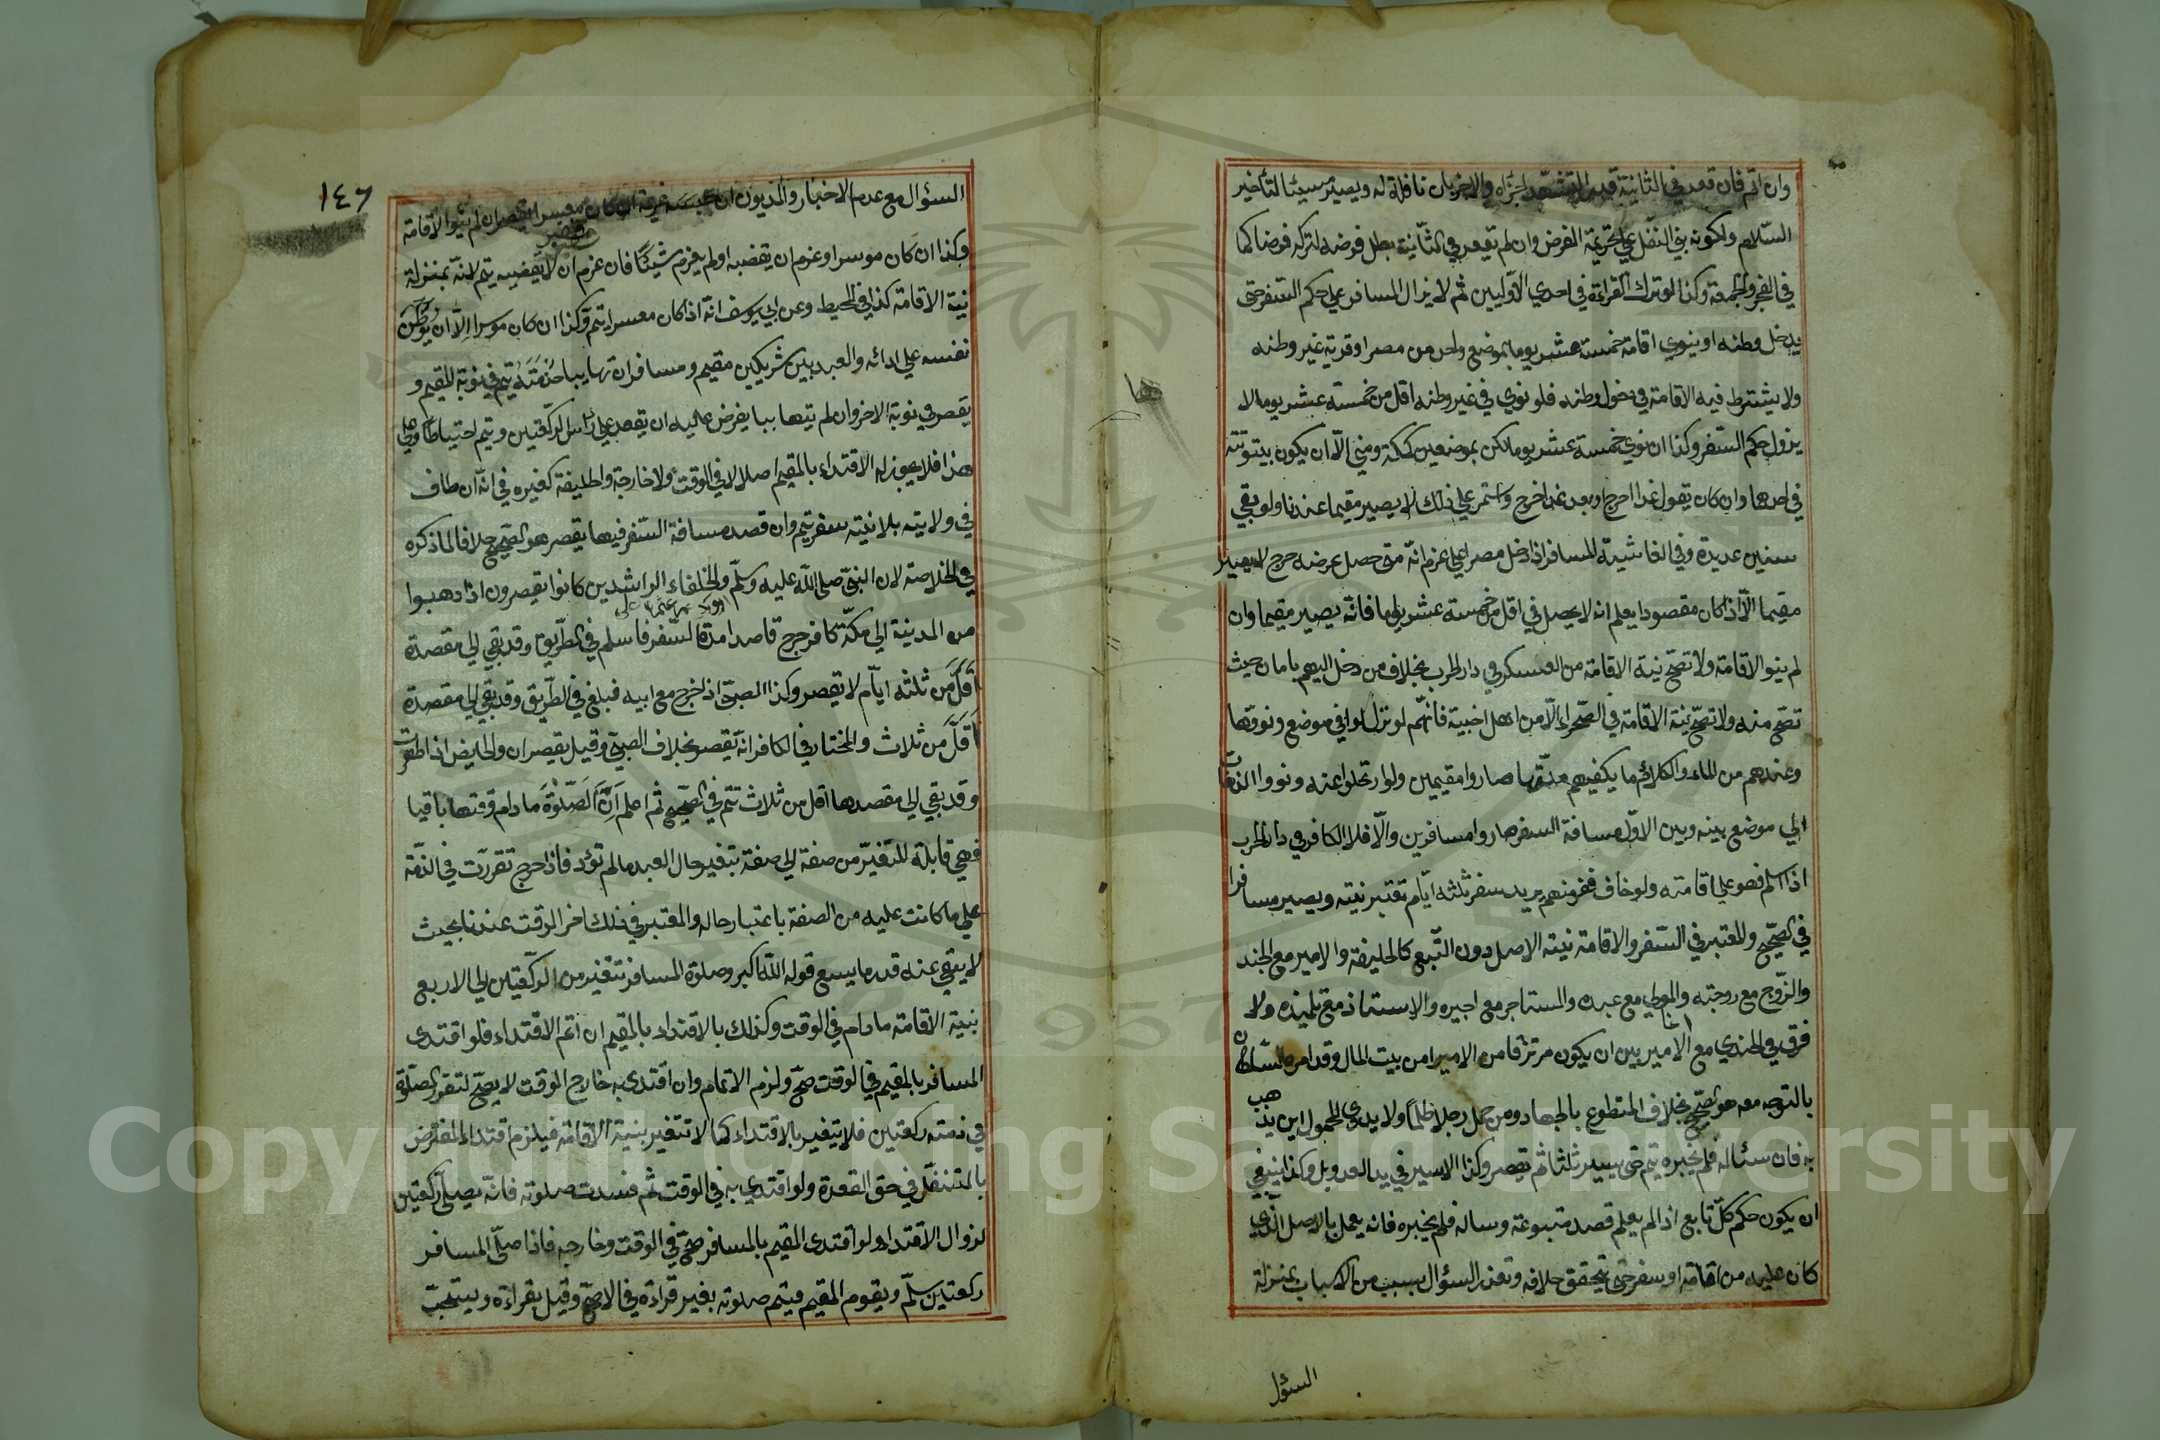 وان اتم فان قعد في الثانية قدر التشهد اجزاه والاخريان نافلة له ويصير مسيئا لتأخير
السّلام ولكونه بنى النفل على تحريمة الفرض وان لم يقعد في الثّانية بطل فرضه لتركه فرضا كما
في الفجر والجمعة وكذا لو ترك القراءة في احدي الاوّليين ثم لا يزال المسافر على حكم السّفر حتى
يدخل وطنه او ينوي اقامة خمسة عشر يوما بموضع واحد من مصر او قرية غير وطنه
ولا يشترط فيه الاقامة في دخول وطنه فلو نوي في غير وطنه اقل من خمسة عشر يوما لا
يزول حكم السّفر وكذا ان نوي خمسة عشر يوما لكن بموضعين كمكة ومني الّا ان يكون بيتوتته
في احدهما وان كان يقول غدا اخرج او بعد غد اخرج واستمر علي ذلك لا يصير مقيما عندنا ولو بقي
سنين عديدة وفي الغاشية المسافر اذا دخل مصرا علي عزم انّه متي حصل غرضه خرج لا يصير
مقيما الّا اذا كان مقصودا يعلم انه لا يحصل في اقل من خمسة عشر يوما فانّه يصير مقيما وان
لم ينو الاقامة ولا تصحّ نية الاقامة من العسكر في دار الحرب بخلاف من دخل اليهم بامان حيث
تصح منه ولا تصحّ نية الاقامة في الصّحراء الّا من اهل اخبية فانّهم لو نزلوا في موضع ونووها
وعندهم من الماء والكلاء ما يكفيهم مدّتها صاروا مقيمين ولو ارتحلوا عنه ونووا الذهاب
الي موضع بينه وبين الاوّل مسافة السفر صاروا مسافرين والّا فلا الكافر في دار الحرب
اذا اسلم فهو علي اقامته ولو خاف فخرج منهم يريد سفر ثلثه ايّام تعتبر نيته ويصير مسافرا
في الصّحيح والمعتبر في السّفر والاقامة نية الاصل دون التّبع كالخليفة والامير مع الجند
والزّوج مع زوجته والمولي مع عبده والمستاجر مع اجيره والاستاذ مع تلميذه ولا
فرق في الجندي مع الامير بين ان يكون مرتزقا من الامير او من بيت المال وقد امره السّلطان
بالتوجه معه هو الصّحيح بخلاف المتطوع بالجهاد ومن حمل رجلا ظلمًا ولا يدري المحمول اين يذهب
به فان سئاله فلم يخبره يتم حتى يسير ثلثا ثم يقصر وكذا الاسير في يد العدو بل وكذا ينبغي
ان يكون حكم كلّ تابع اذا لم يعلم قصد متبوعه وساله فلم يخبره فانه يعمل بالاصل الّذي
كان عليه من اقامة او سفر حتى يتحقق خلافه وتعذر السؤال بسبب من الاسباب بمنزلة
السؤل
١٤٦
السؤال مع عدم الاخبار والمديون ان حبسه غريمه ان كان معسرا قصر ان لم ينو الاقامة
وكذا ان كان موسرا وعزم ان يقضيه او لم يعزم شيئًا فان عزم ان لا يقضيه يتم لانّه بمنزلة
نية الاقامة كذا في المحيط وعن ابي يوسف انّه اذا كان معسرا يتم وكذا ان كان موسرا الّا ان يُوَطِّنَ
نفسه علي ادائه والعبد بين شريكين مقيم ومسافر ان تهايبا خدمته يتم في نوبة المقيم و
يقصر في نوبة الاخر وان لم يتهايبا يفرض عليه ان يقعد علي راس الركعتين ويتم احتياطا وعلي
هذا فلا يجوز له الاقتداء بالمقيم اصلا لا في الوقت ولا خارجه والخليفة كغيره في انّه ان طاف
في ولايته بلا نية سفر يتم وان قصد مسافة السّفر فيها يقصر هو الصّحيح خلافا لما ذكره
في الخلاصة لان النبيّ صلى اللّه عليه وسلّم والخلفاء الراشدين كانوا يقصرون اذا ذهبوا
من المدينة الي مكّة كافر خرج قاصدا مدة السّفر فاسلم في الطّريق وقد بقي الي مقصده
اقلّ من ثلثه ايّام لا يقصر وكذا الصبيّ اذا خرج مع ابيه فبلغ في الطّريق وقد بقي الي مقصده
اَقلّ من ثلاث والمختار في الكافر انّه يقصر بخلاف الصبيّ وقيل يقصران والحايض اذا طهرت
وقد بقي الي مقصدها اقل من ثلاث تتم في الصّحيح ثم اعلم اَنَّ الصّلوٰة ما دام وقتها باقيا
فهي قابلة للتغيّر من صفة الي صفة بتغير حال العبد ما لم تؤد فاذا خرج تقررت في الذمّة
علي ما كانت عليه من الصفة باعتبار حاله والمعتبر في ذلك اخر الوقت عندنا بحيث
لا يبقي عنه قدر ما يسع قوله اللّه اكبر وصلوة المسافر تتغير من الركعتين الي الاربع
بنية الاقامة ما دام في الوقت وكذلك بالاقتداء بالمقيم ان اتم الاقتداء فلو اقتدي
المسافر بالمقيم في الوقت صحّ ولزم الاتمام وان اقتدي به خارج الوقت لا يصحّ لتقرر الصلوة
في ذمته ركعتين فلا يتغير بالاقتداء كما لا تتغير بنية الاقامة فيلزم اقتداء المفترض
بالمتنفّل في حق القعدة ولو اقتدي به في الوقت ثم فسدت صلوته فانّه يصلّي ركعتين
لزوال الاقتداء ولو اقتدي المقيم بالمسافر صحّ في الوقت وخارجه فاذا صلّي المسافر
ركعتين سلّم ويقوم المقيم فيتم صلوته بغير قراءة في الاصحّ وقيل بقراءة ويستحبّ
Copyright © King Saud University
1957